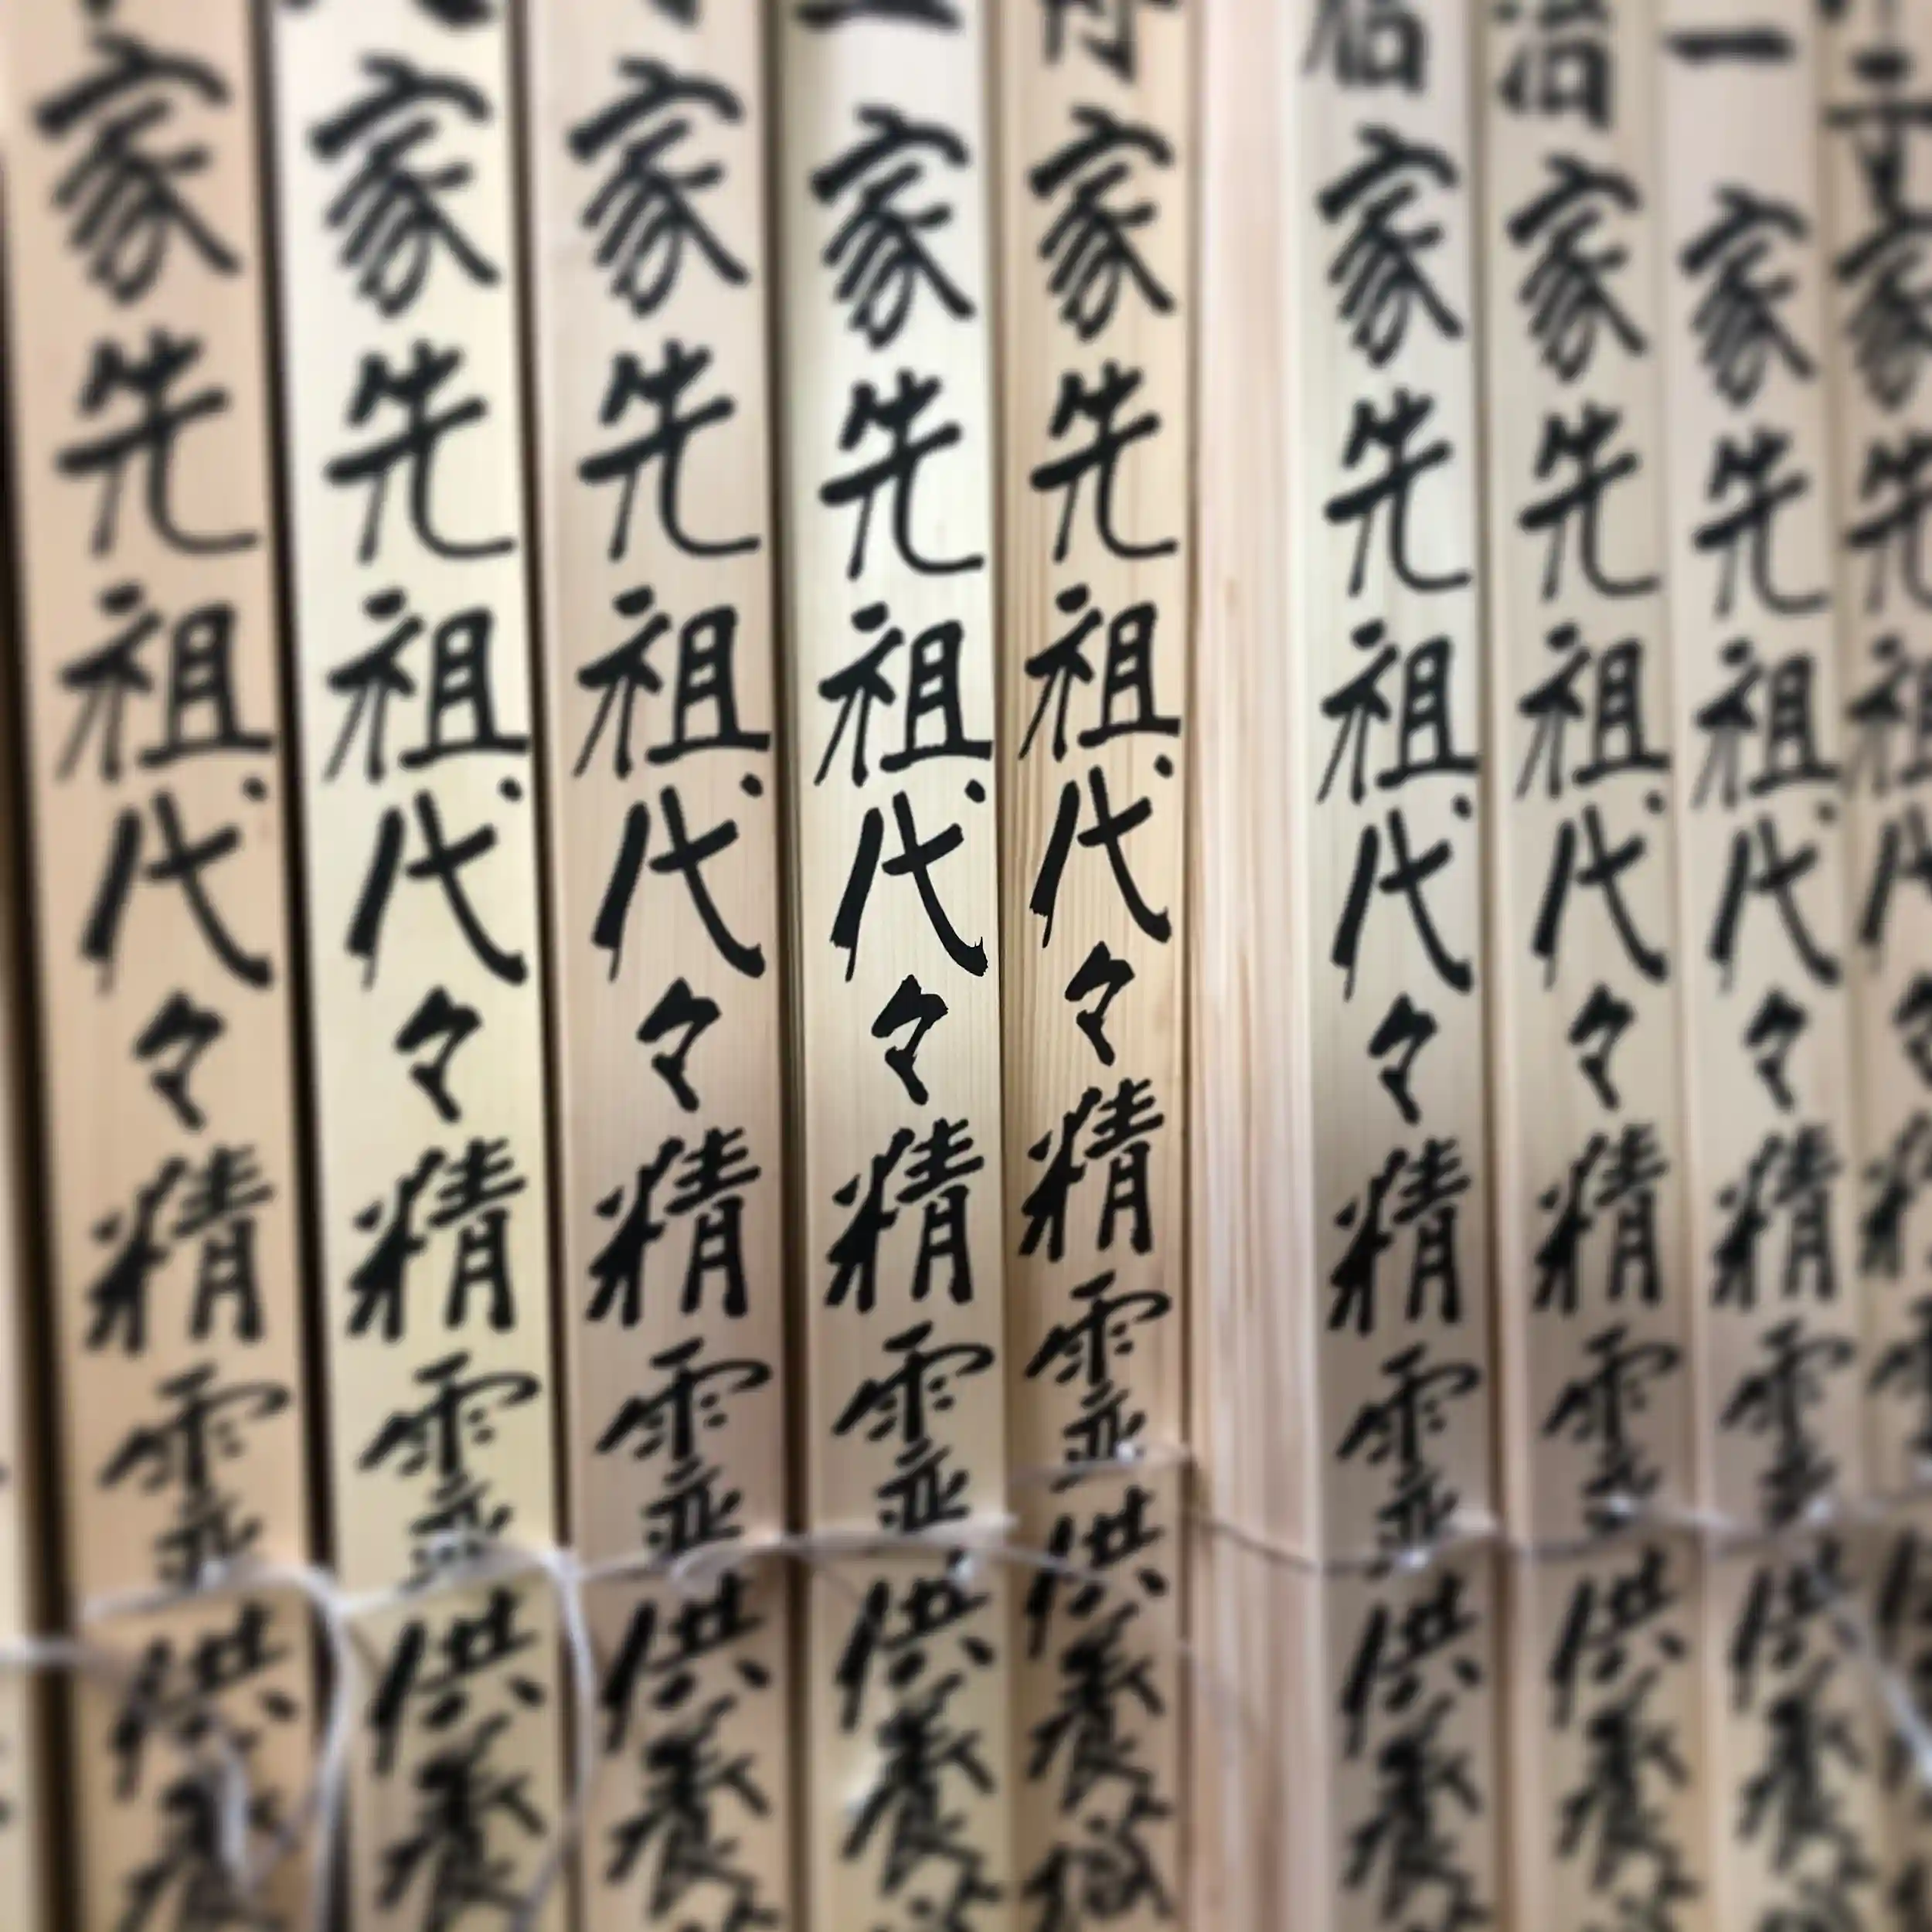 家先祖代
一家先祖代々精霊供養
治家先祖代々精霊供養
家先祖代々精霊供養
家先祖代々精霊供養
家先祖代々精霊供養
家先祖代々精霊供養
家先祖代々精霊供養
家先祖代々精霊供養